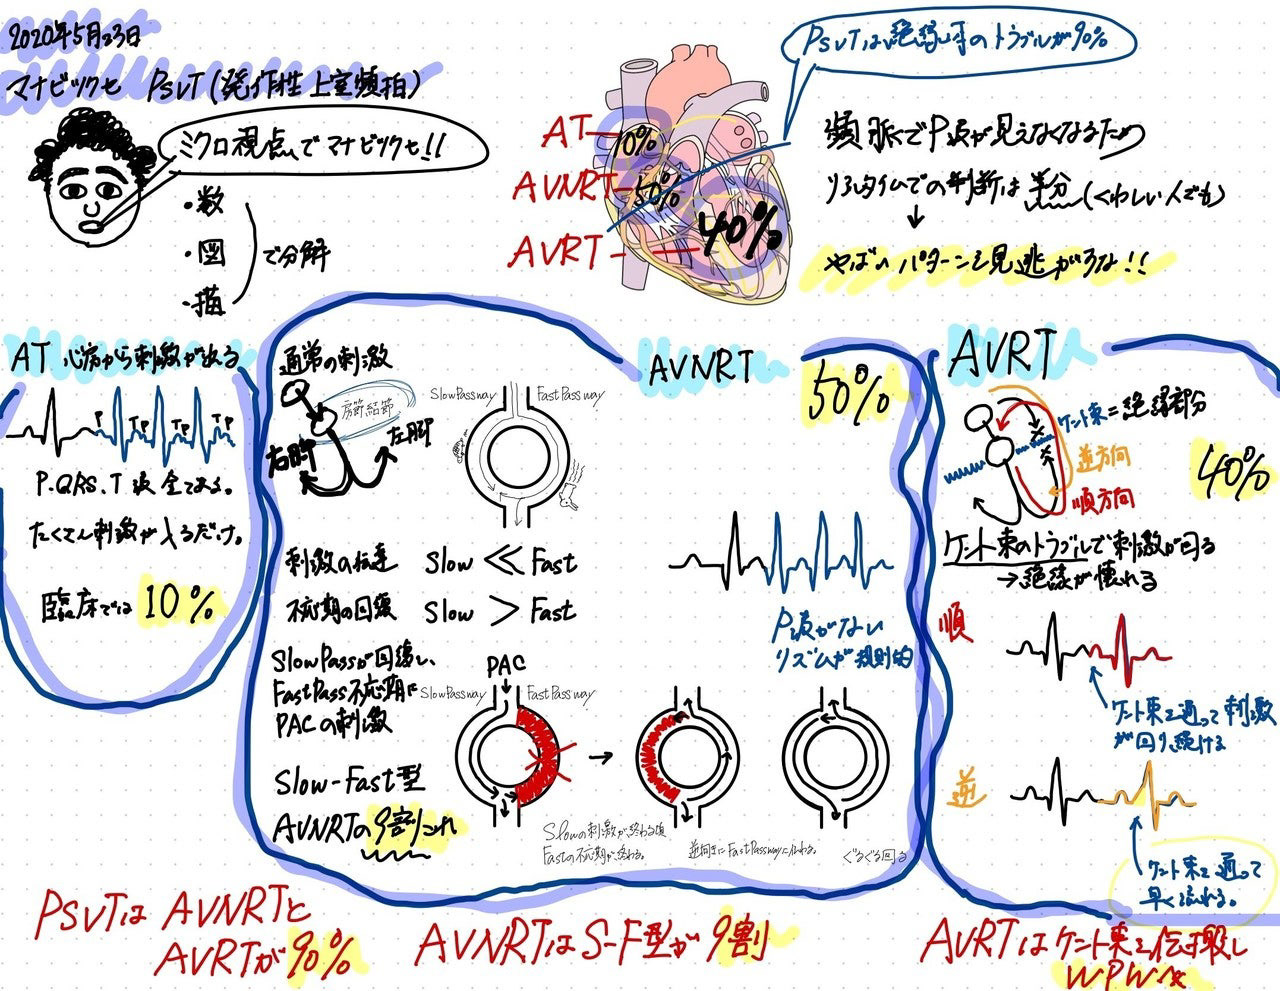 2020年5月23日
マナビツクセ PSVT(発作性上室頻拍)
ミクロ視点でマナビツクセ!!
・数
・図
・描
で分解
AT
AVNRT
AVRT
10%
50%
40%
PSVTは絶縁体のトラブルが90%
頻脈でP波が見えなくなるため
リアルタイムでの判断は半分(くわしい人でも)
↓
やばいパターンを見逃がすな!!
AT 心房から刺激が出る
T TP TP TP
P.QRS.T波全てある。
たくさん刺激が入るだけ。
臨床では10%
通常の刺激
房節結節
右脚
左脚
SlowPassway
FastPassway
AVNRT
50%
刺激の伝達 Slow ≪ Fast
不応期の回復 Slow > Fast
P波がない
リズムが規則的
SlowPassが回復し、
FastPass不応期に
PACの刺激
PAC
SlowPassway
FastPassway
→
Slow-Fast型
AVNRTの9割これ
Slowの刺激が終わる頃
Fastの不応期が終わる。
逆向きにFastPasswayに伝わる。
ぐるぐる回る
AVRT
40%
ケント束=絶縁部分
逆方向
順方向
ケント束のトラブルで刺激が回る
→絶縁が壊れる
順
ケント束を通って刺激
が回り続ける
逆
ケント束を通って
早く流れる。
PSVTはAVNRTと
AVRTが90%
AVNRTはS-F型が9割
AVRTはケント束を
WPW